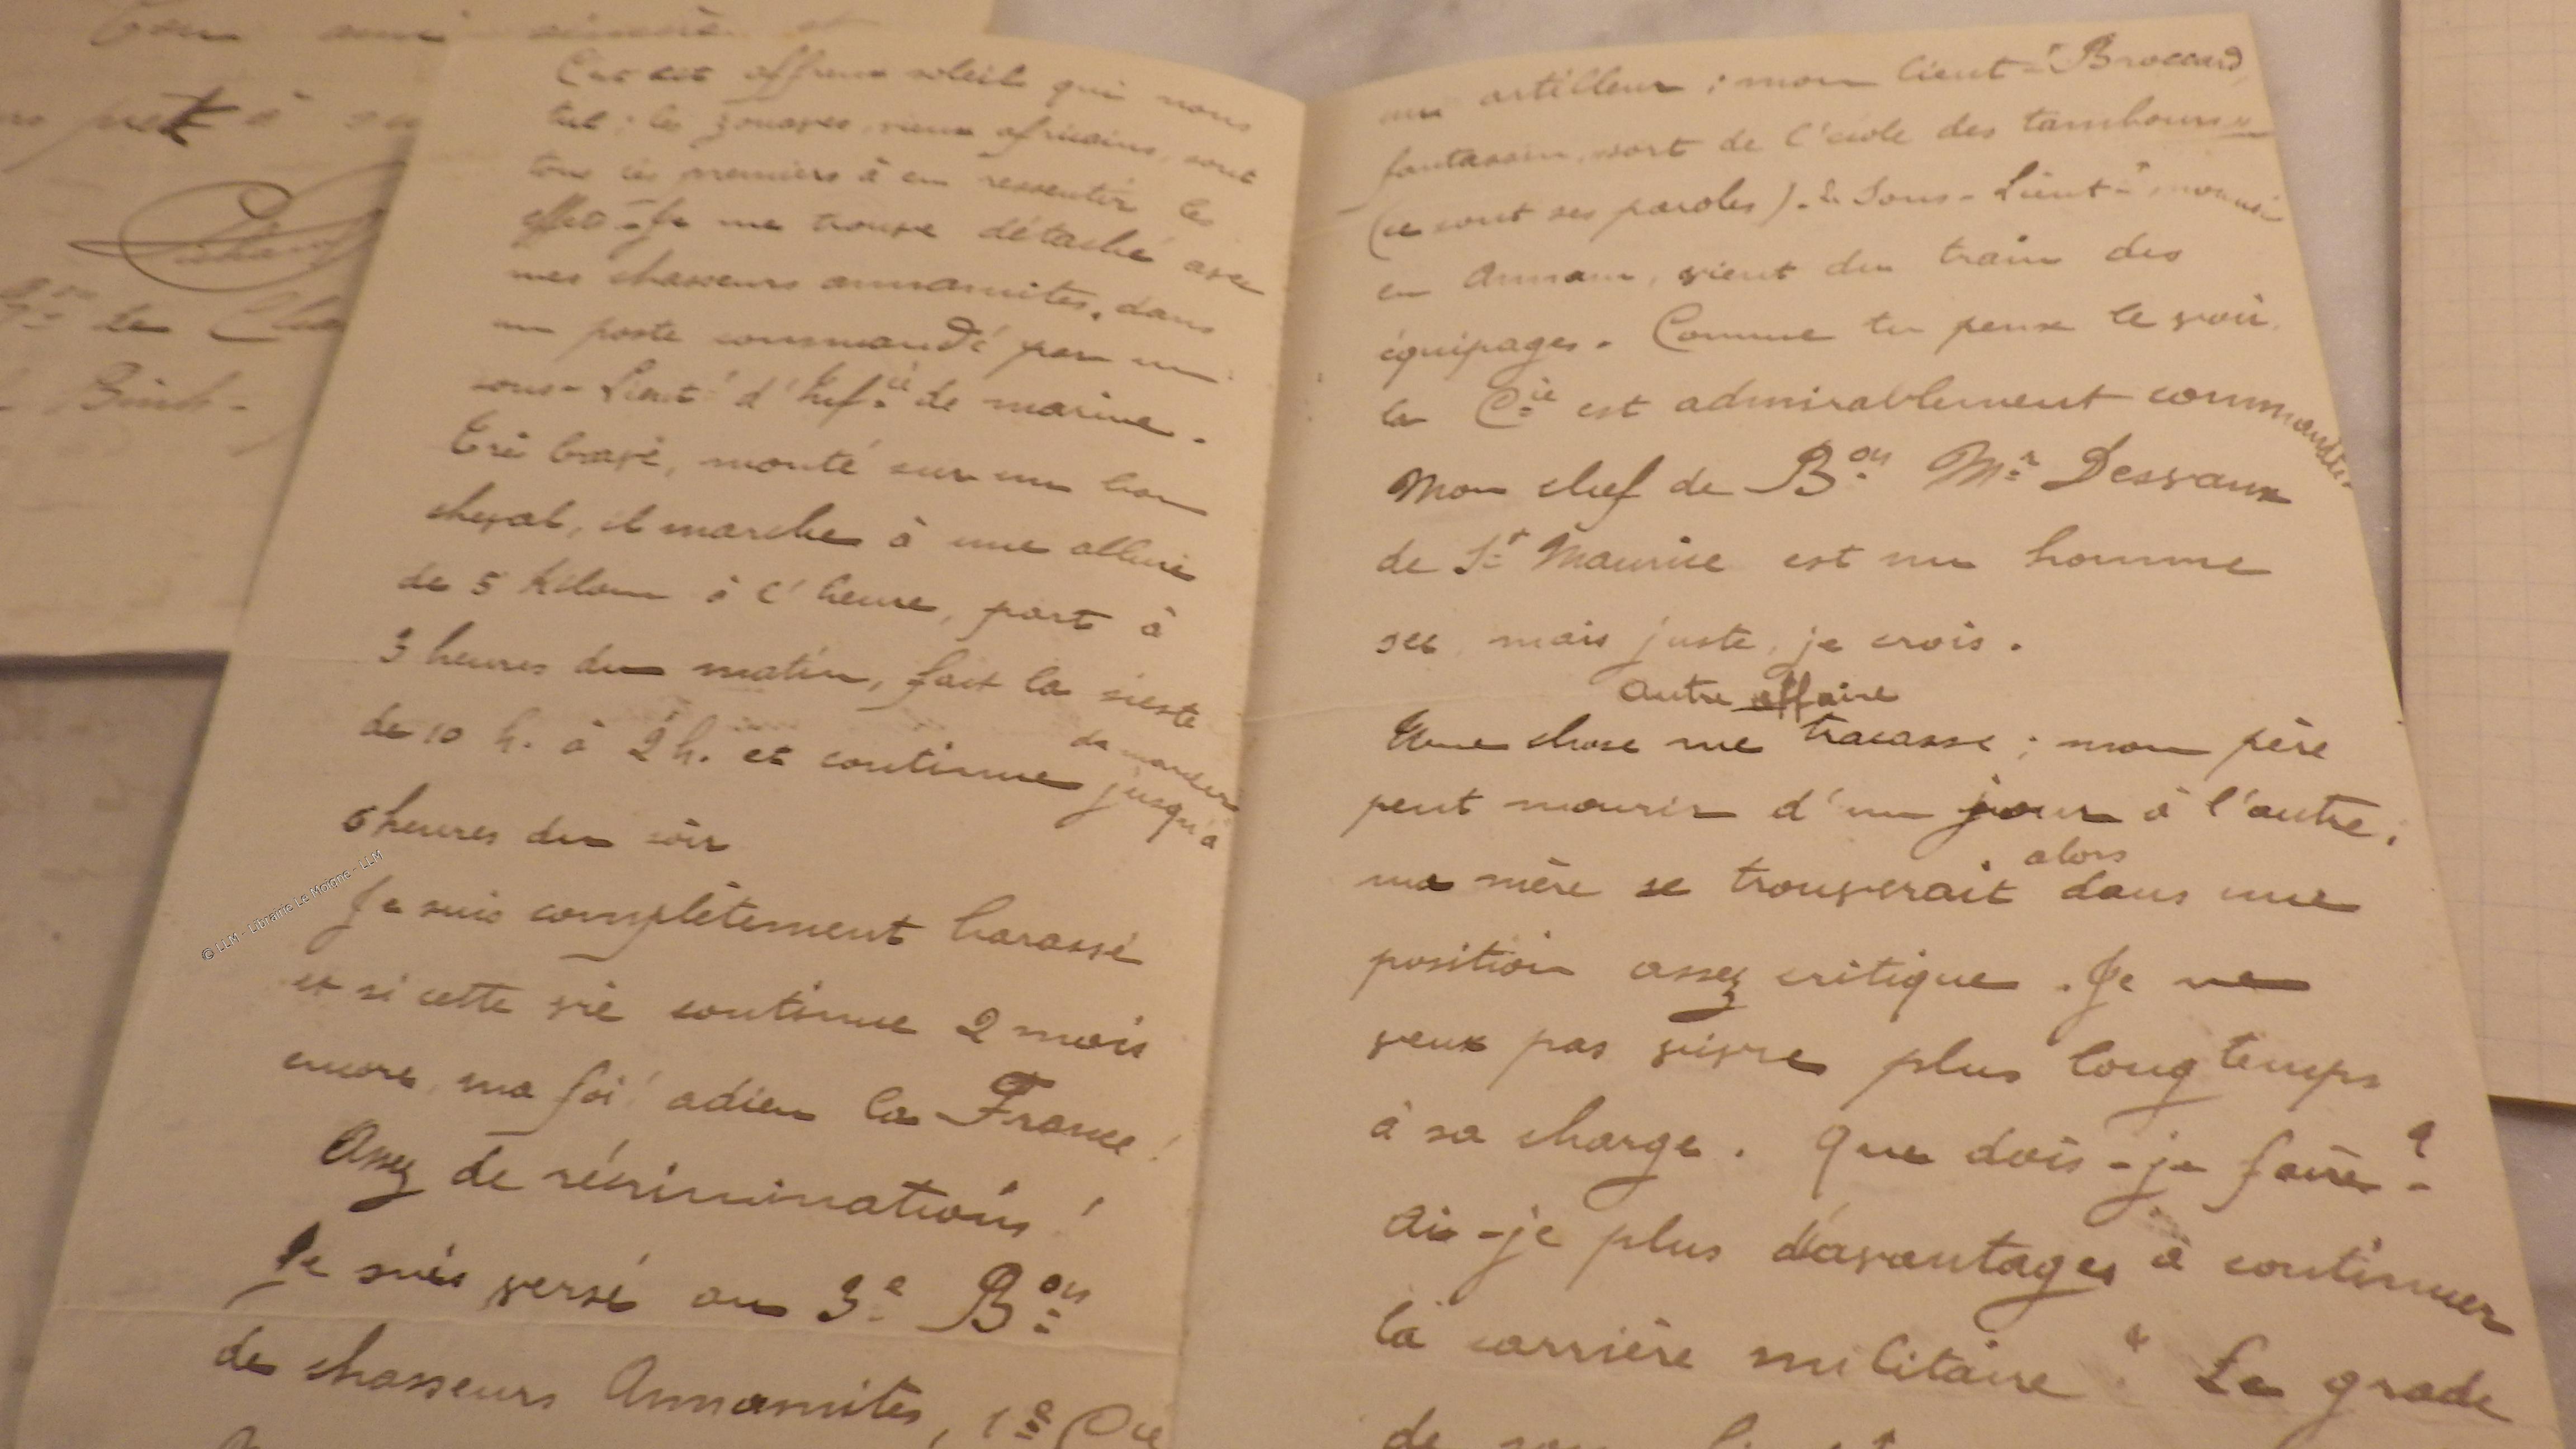 prêt à
de
Binh -
C'est cet affreux soleil qui nous
tue ; les zouaves, vieux africains, sont
tous les premiers à en ressentir les
effets. Je me trouve détaché avec
mes chasseurs annamites, dans
un poste commandé par un
sous-Lieut.t d'Inf.ie de marine.
Très brave, monté sur un bon
cheval, il marche à une allure
de 5 Kilom à l'heure, part à
3 heures du matin, fait la sieste
de 10 h. à 2 h. et continue de marcher jusqu'à
6 heures du soir
Je suis complètement harassé
et si cette vie continue 2 mois
encore, ma foi ! adieu la France !
Assez de récriminations !
Je suis versé au 3.e B.on
de chasseurs Annamites, 1.e Cie
un artilleur ; mon lieut.t Broccard,
fantassin, sort de l'école des tambours "
(ce sont ses paroles). Le Sous-Lieut.t
en Annam, vient du train des
équipages. Comme tu peux le voir,
la C.ie est admirablement commandée.
Mon chef de B.on M.r Desvaux
de S.t Maurice est un homme
sec, mais juste, je crois.
autre affaire
Une chose me tracasse ; mon père
peut mourir d'un jour à l'autre ;
ma mère se trouverait alors dans une
position assez critique. Je ne
veux pas vivre plus longtemps
à sa charge. Que dois-je faire ?
Ai-je plus d'avantages à continuer
la carrière militaire " Le grade
de
© LLM - Librairie Le Moigne - LLM